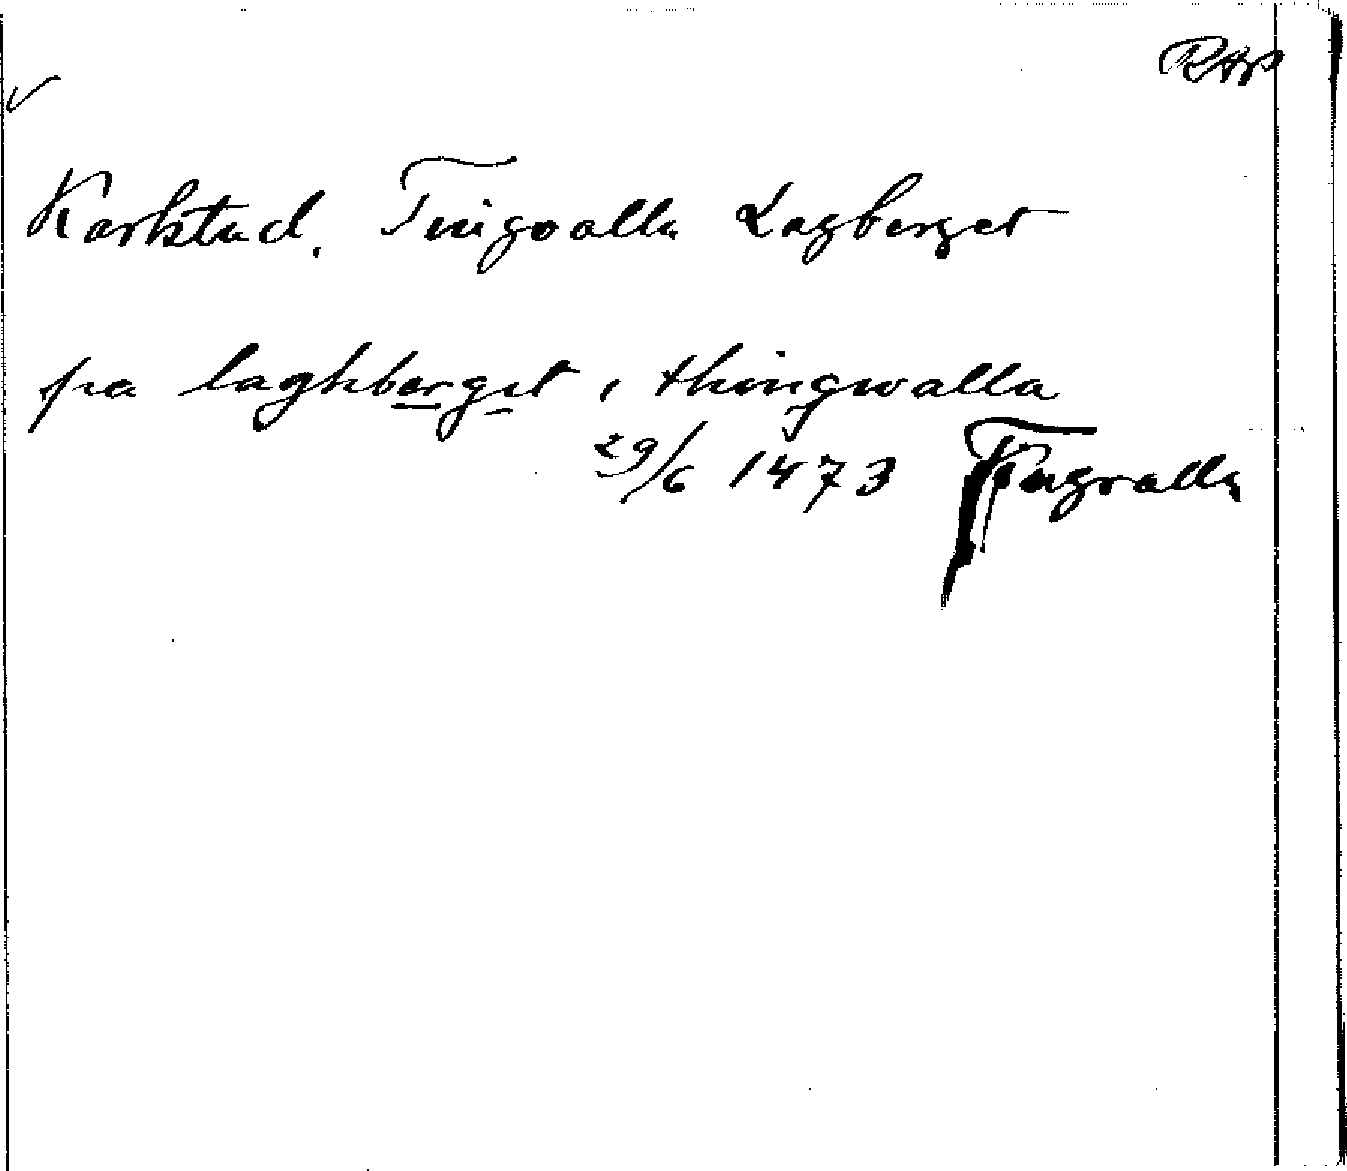 RAP
Karlstad. Tingvalla Lagberget
pa laghberget i thingwalla
29/6 1473 Tingvalla